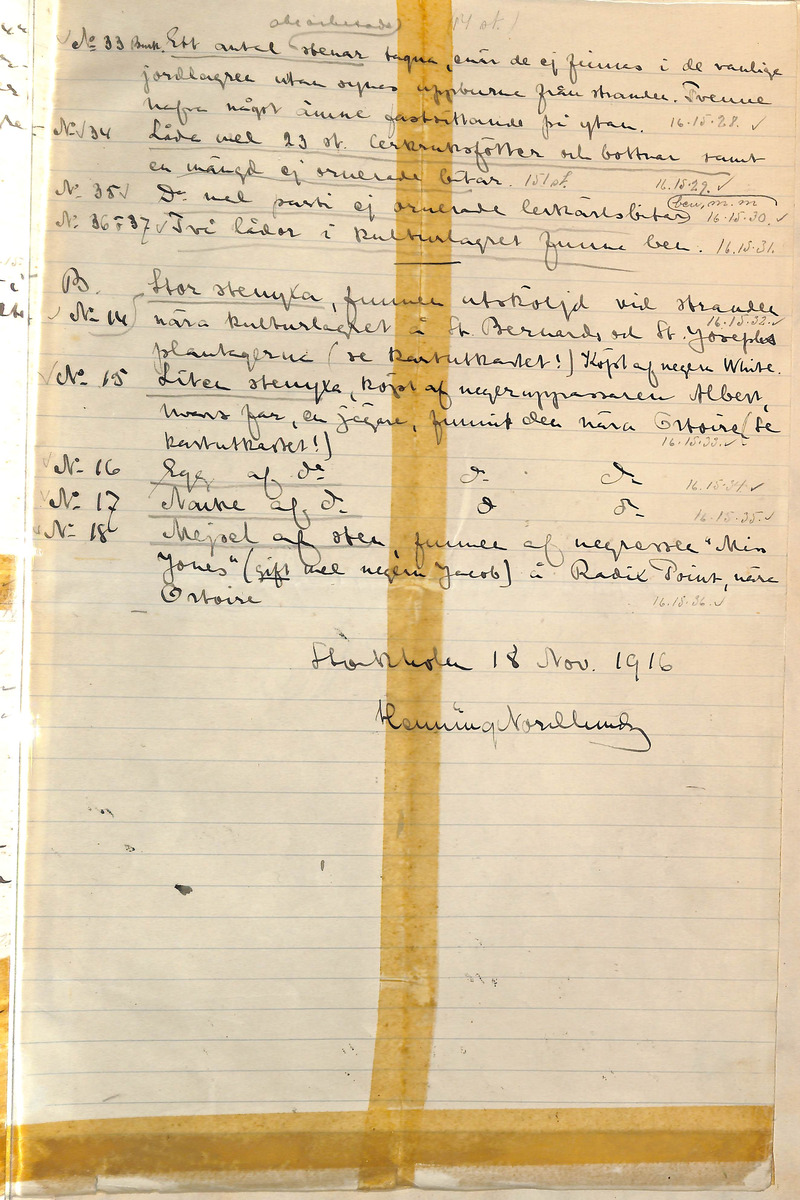 obearbetade) (14 st.)
✓ No 33 Burk. Ett antal stenar tagna, enär de ej finnas i de vanliga
jordlagren utan synes uppburna från stranden. Tvenne
hafva något ämne fastsittande på ytan. 16.15.28. ✓
No ✓ 34 Låda med 23 st. lerkruksfötter och bottnar samt
en mängd ej ornerade bitar. 151 st. 16.15.29. ✓
No 35 ✓ Do med parti ej ornerade lerkärlsbitar (ben, m.m 16.15.30. ✓
No 36 o 37 ✓ Två lådor i kulturlagret funna ben. 16.15.31.
B. Stor stenyxa, funnen utsköljd vid stranden
✓ No 14 nära kulturlagret å St. Bernards och St. Josephs 16.15.32. ✓
plantagerna (se kartutkastet!) Köpt af negern White.
✓ No 15 Liten stenyxa, köpt af negeruppassaren Albert,
hvars far, en jägare, funnit den nära Ortoire (Se
kartutkastet!) 16.15.33. ✓
✓ No 16 Egg af do do do 16.15.34. ✓
✓ No 17 Nacke af do d do 16.15.35. ✓
No 18 Mejsel af sten, funnen af negressen "Miss
Jones" (gift med negern Jacob) å Radix Point, nära
Ortoire 16.15.36. ✓
Stockholm 18 Nov. 1916
Henning Nordlund